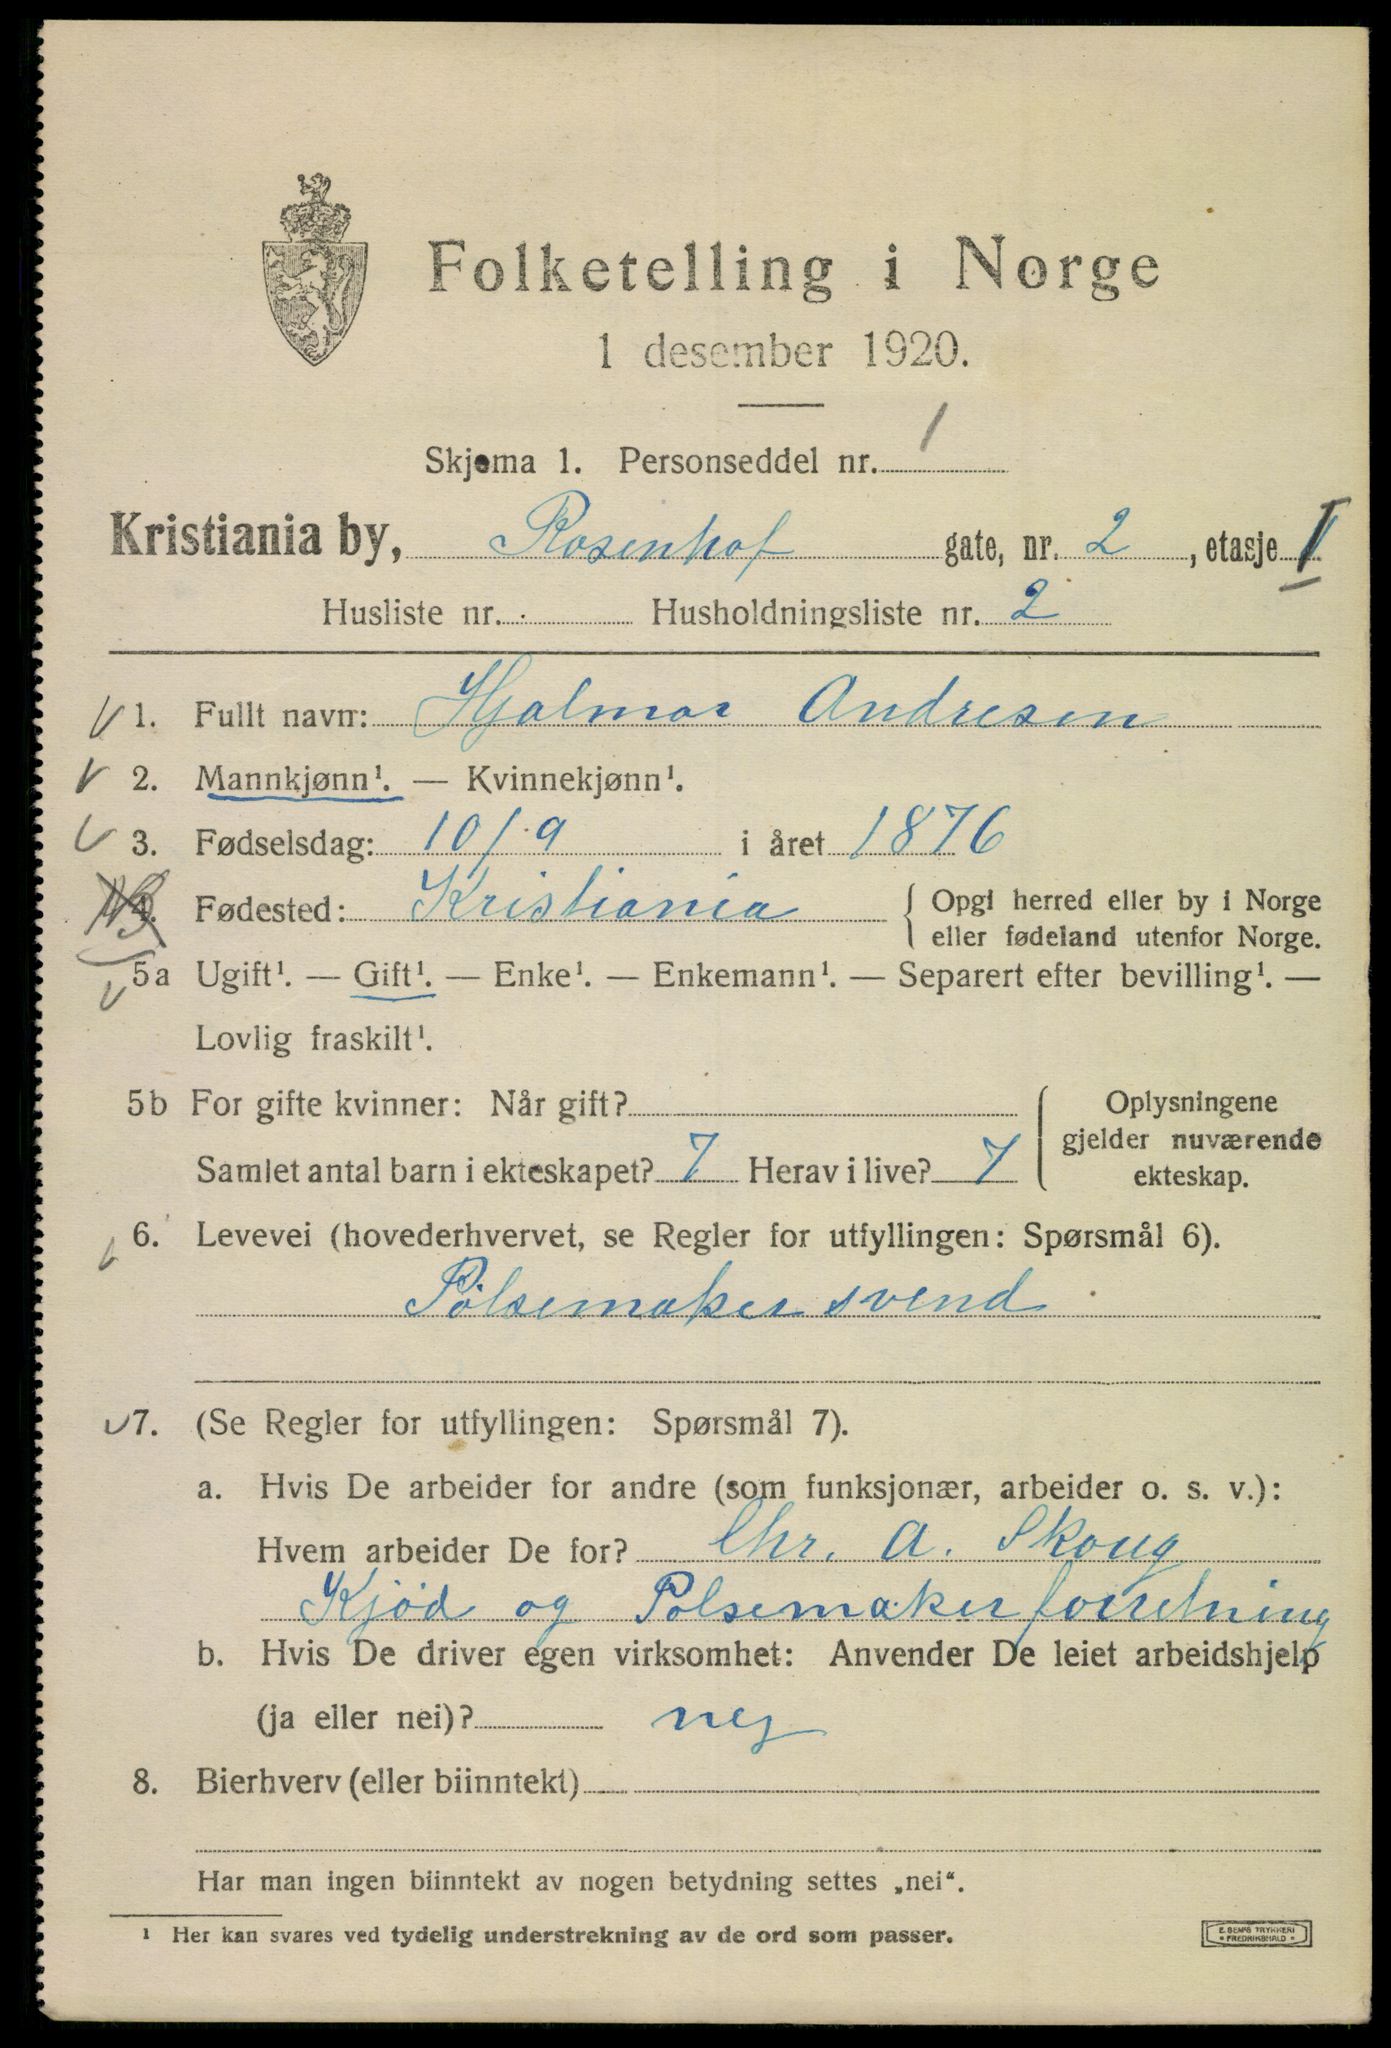 Folketelling i Norge
1 desember 1920.
Skjema 1. Personseddel nr. 1
Kristiania by, Rosenhof gate, nr. 2, etasje I
Husliste nr. Husholdningsliste nr. 2
1. Fullt navn: Hjalmar Andresen
2. Mannkjønn¹. — Kvinnekjønn¹.
3. Fødselsdag: 10/9 i året 1876
4. Fødested: Kristiania { Opgi herred eller by i Norge
eller fødeland utenfor Norge.
5a Ugift¹. — Gift¹. — Enke¹. — Enkemann¹. — Separert efter bevilling¹. —
Lovlig fraskilt¹.
5b For gifte kvinner: Når gift? Oplysningene
gjelder nuværende
Samlet antal barn i ekteskapet? 7 Herav i live? 7 ekteskap.
6. Levevei (hovederhvervet, se Regler for utfyllingen: Spørsmål 6).
Pølsemaker svend
7. (Se Regler for utfyllingen: Spørsmål 7).
a. Hvis De arbeider for andre (som funksjonær, arbeider o. s. v.):
Hvem arbeider De for? Chr. A. Skoug
Kjød og Pølsemaker forretning
b. Hvis De driver egen virksomhet: Anvender De leiet arbeidshjelp
(ja eller nei)? nej
8. Bierhverv (eller biinntekt)
Har man ingen biinntekt av nogen betydning settes „nei“.
¹ Her kan svares ved tydelig understrekning av de ord som passer.
E. SEMS TRYKKERI
• FREDRIKSHALD •